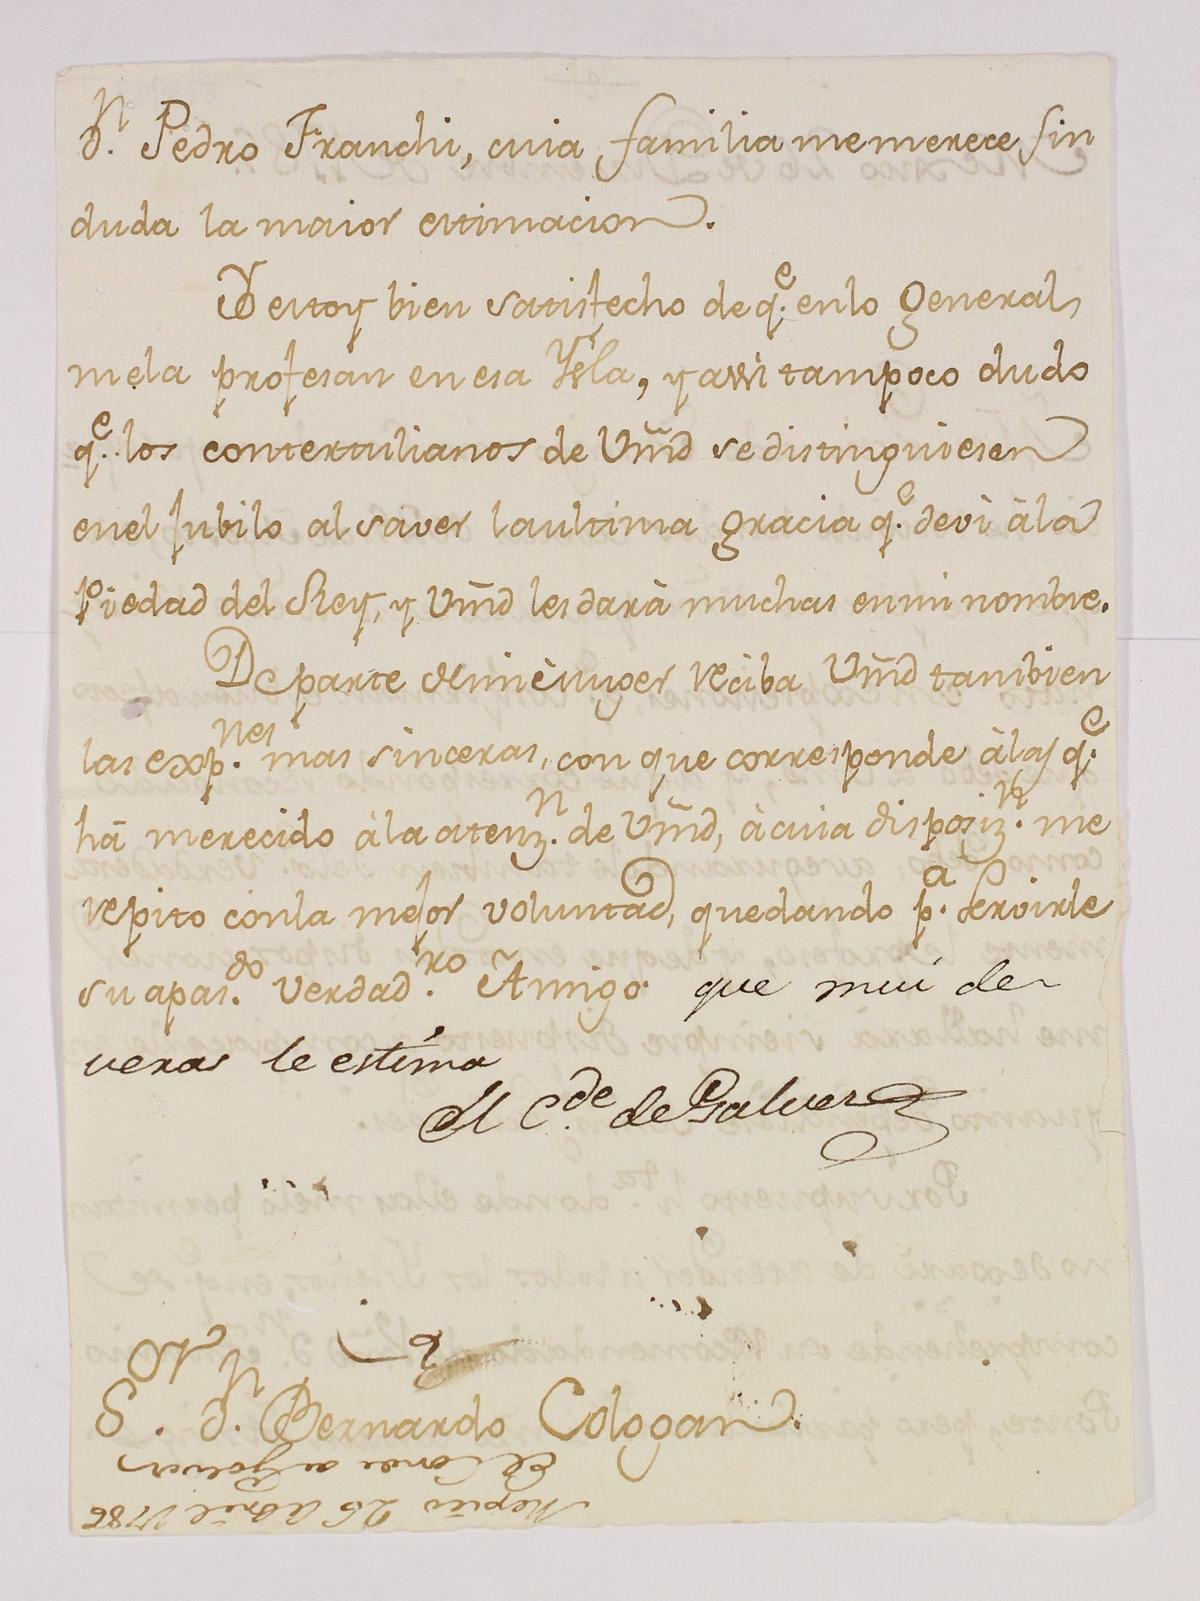 d.n Pedro Franchi, cuia familia me merece sin
duda la maior estimacion.
Yo estoy bien satisfecho de q.e en lo general
me la profesan en esa Ysla, y assi tampoco dudo
q.e los contertulianos de Vm̃d se distinguiesen
en el jubilo al saver la ultima gracia q.e devi à la
Piedad del Rey, y Vm̃d les darà muchas en mi nombre.
De parte de mi muger reciba Vm̃d tambien
las exp.nes mas sinceras, con que corresponde à las q.e
hà merecido à la atenz.n de Vm̃d, à cuia disposiz.n me
repito con la mejor voluntad, quedando p.a Servirle
su apas.do verdad.ro Amigo que mui de
veras le estima
El C.de de Galvez
S.or d.n Bernardo Cologan.
El Conde de Galvez
Mexico 26 Abril 1786